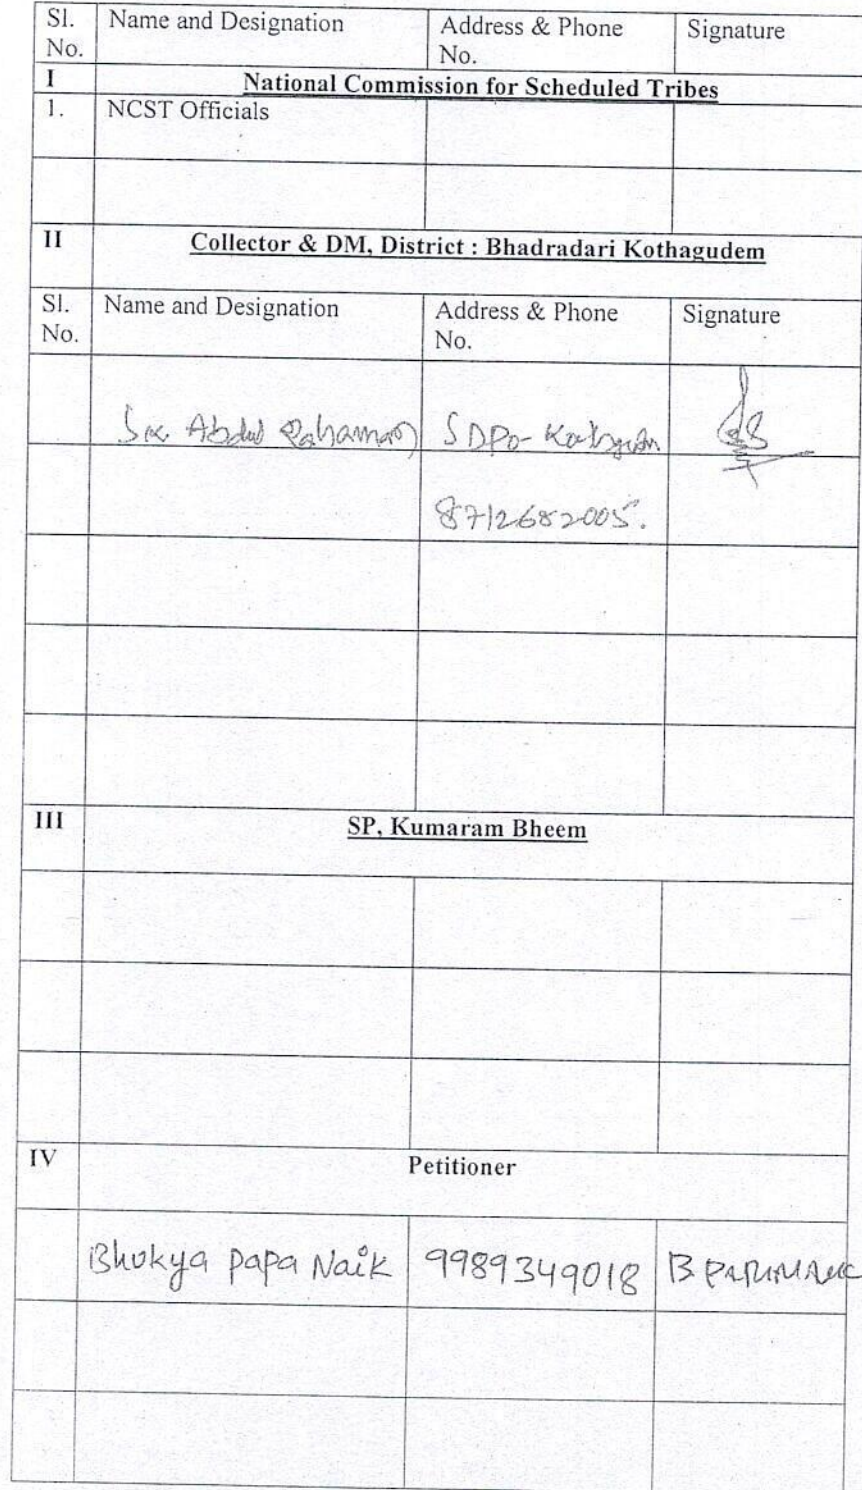 Sl. Name and Designation Address & Phone Signature
No. No.
I National Commission for Scheduled Tribes
1. NCST Officials
II Collector & DM, District : Bhadradari Kothagudem
Sl. Name and Designation Address & Phone Signature
No. No.
Sk. Abdul Rahaman SDPO-
8712682005.
III SP, Kumaram Bheem
IV Petitioner
Bhukya Papa Naik 9989349018 B